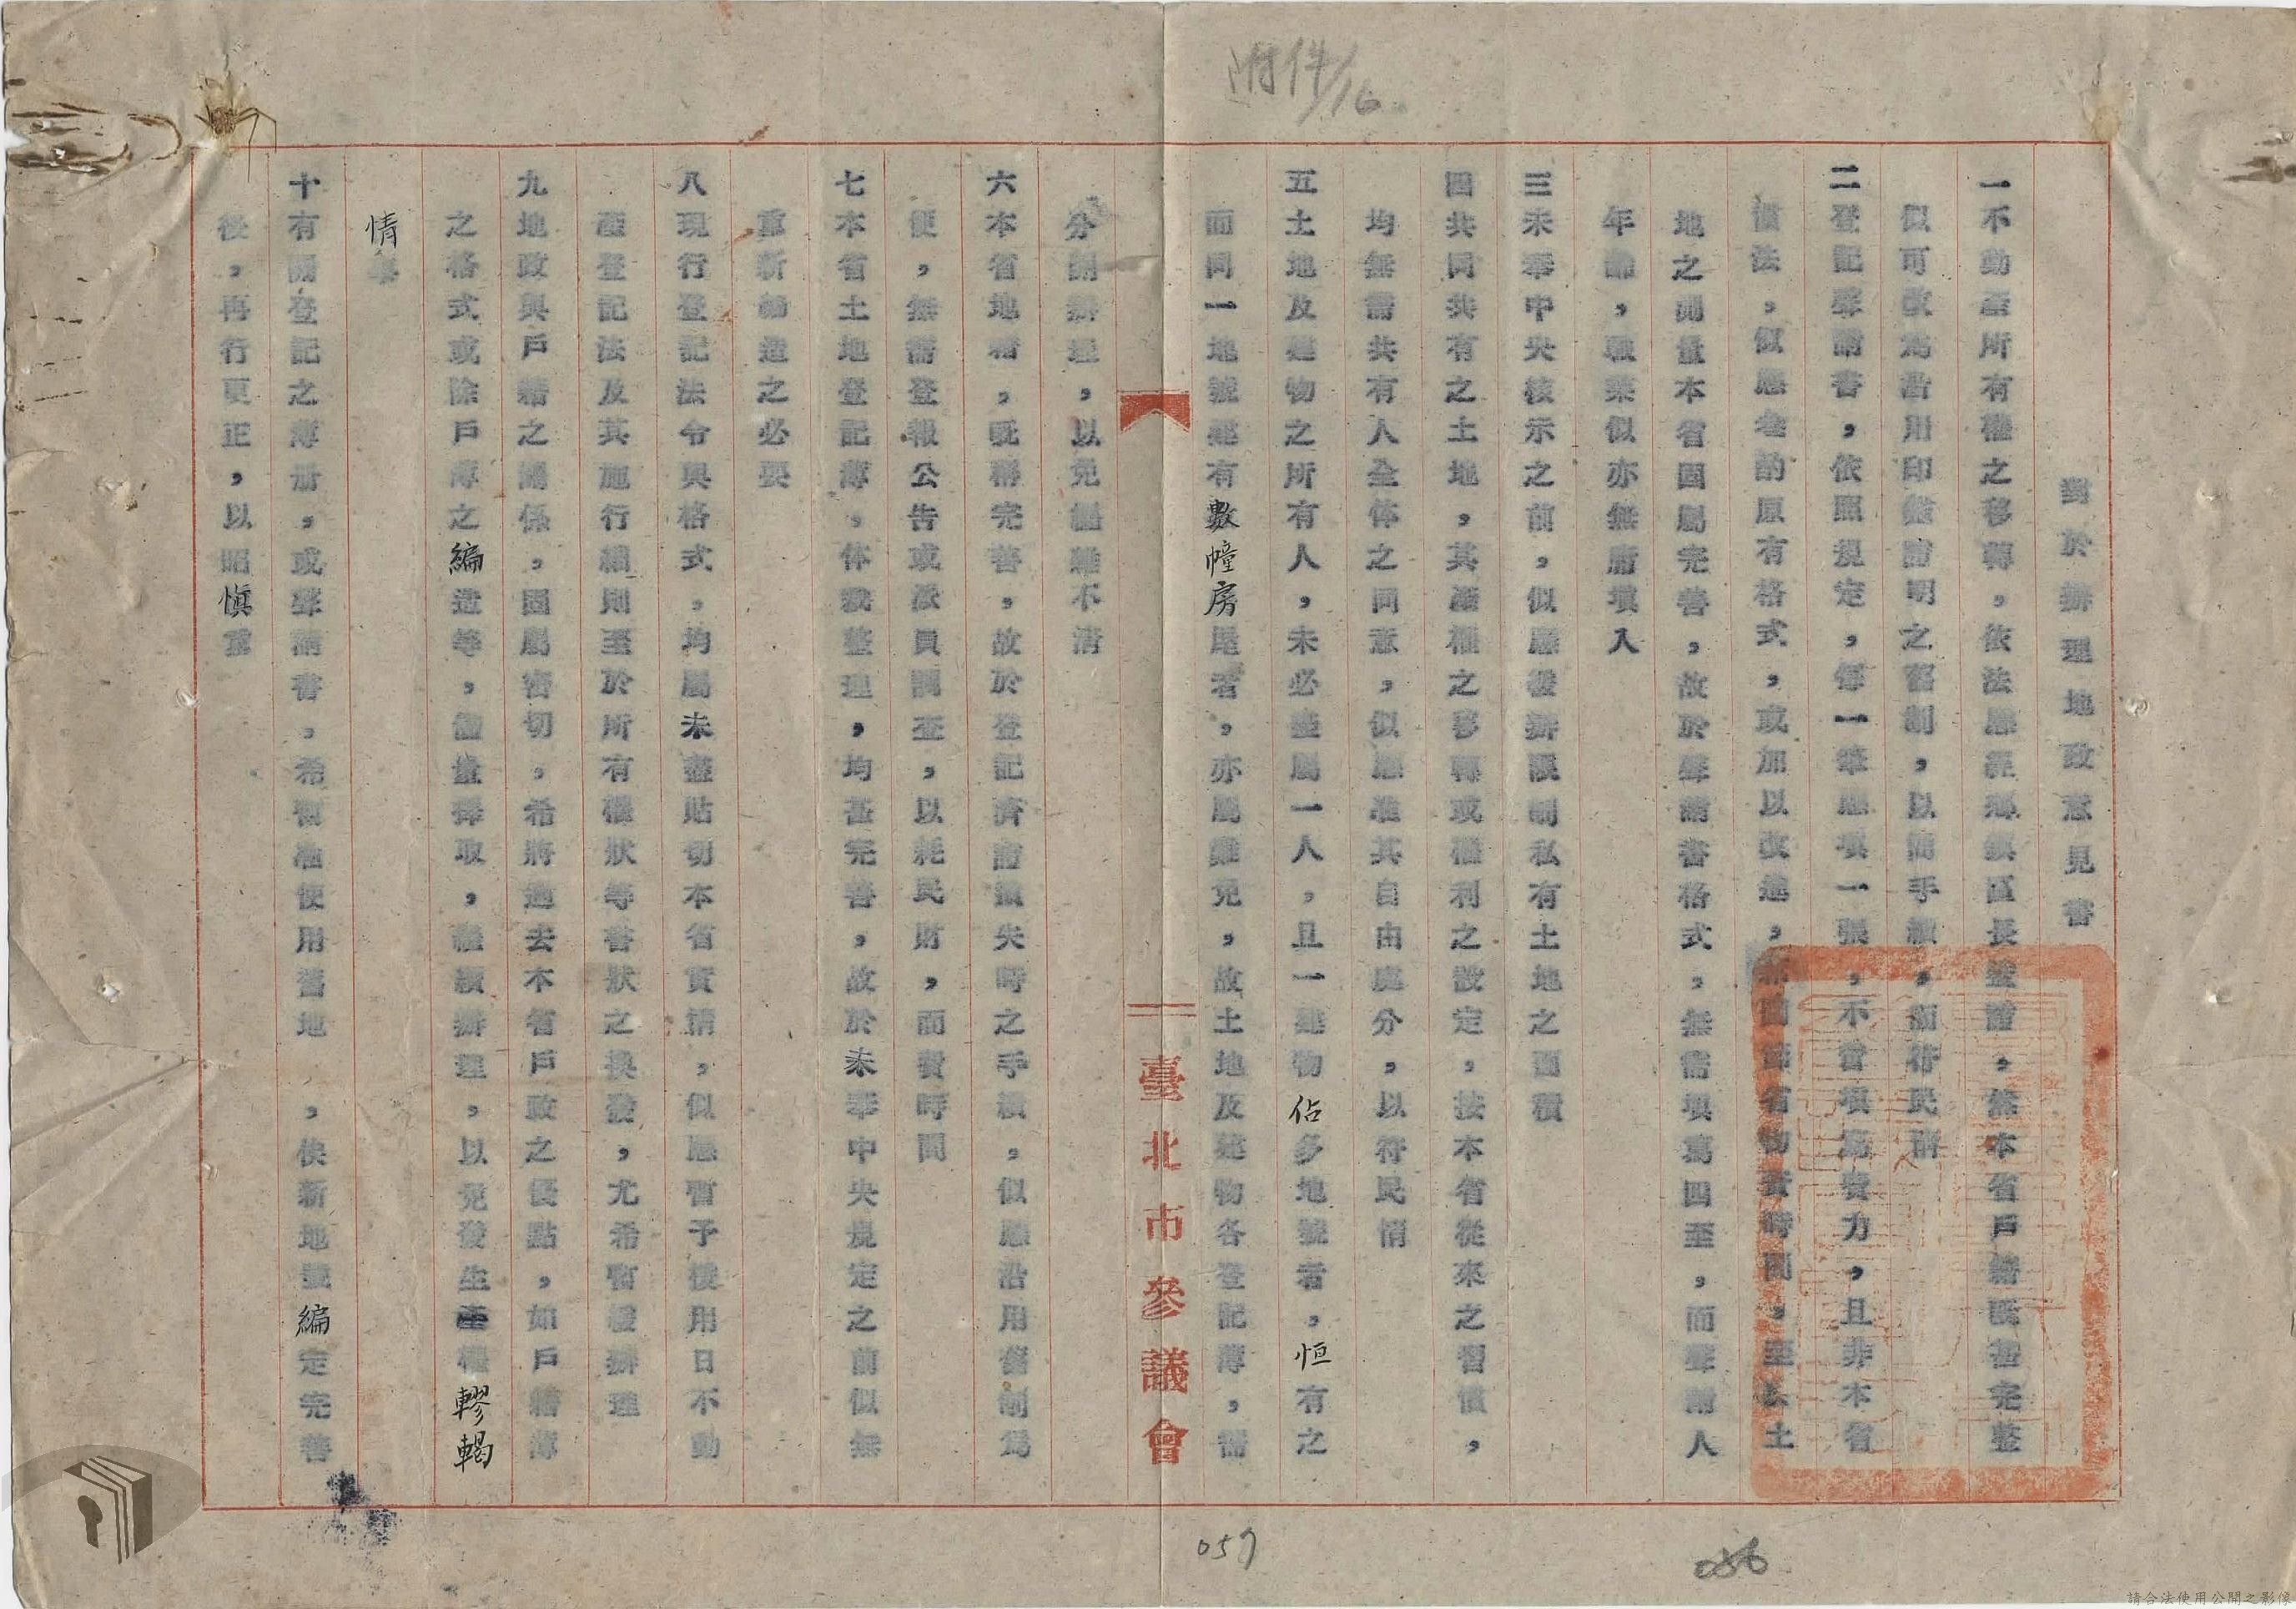 附件/16
對於辦理地政意見書
一不動產所有權之移轉，依法應經鄉鎮區長簽證，然本省戶籍既甚完整
似可改為沿用印鑑證明之舊制，以簡手續，而符民情
二登記聲請書，依照規定，每一筆應填一張，不啻填寫費力，且非本省
慣法，似應參酌原有格式，或加以改進，以省物資時間，至於土
地之測量本省固屬完善，故於聲請書格式，無需填寫四至，而聲請人
年齡，職業似亦無庸填入
三未奉中央核示之前，似應緩辦限制私有土地之面積
四共同共有之土地，其產權之移轉或權利之設定，按本省從來之習慣，
均無需共有人全体之同意，似應准其自由處分，以符民情
五土地及建物之所有人，未必盡屬一人，且一建物佔多地號者，恒有之
而同一地號建有數幢房屋者，亦屬難免，故土地及建物各登記簿，需
分開辦理，以免混雜不清
臺北市參議會
六本省地籍，既稱完善，故於登記濟證滅失時之手續，似應沿用舊制為
便，無需登報公告或派員調查，以耗民財，而費時間
七本省土地登記簿，体裁整理，均甚完善，故於未奉中央規定之前似無
重新編造之必要
八現行登記法令與格式，均屬未盡貼切本省實情，似應暫予援用日不動
產登記法及其施行細則至於所有權狀等書狀之換發，尤希暫緩辦理
九地政與戶籍之關係，固屬密切，希將過去本省戶政之優點，如戶籍簿
之格式或除戶簿之編造等，儘量採取，繼續辦理，以免發生產權轇轕
情事
十有關登記之簿册，或聲請書，希暫准使用舊地，俟新地號編定完善
後，再行更正，以昭慎重
057
056
請合法使用公開之影像